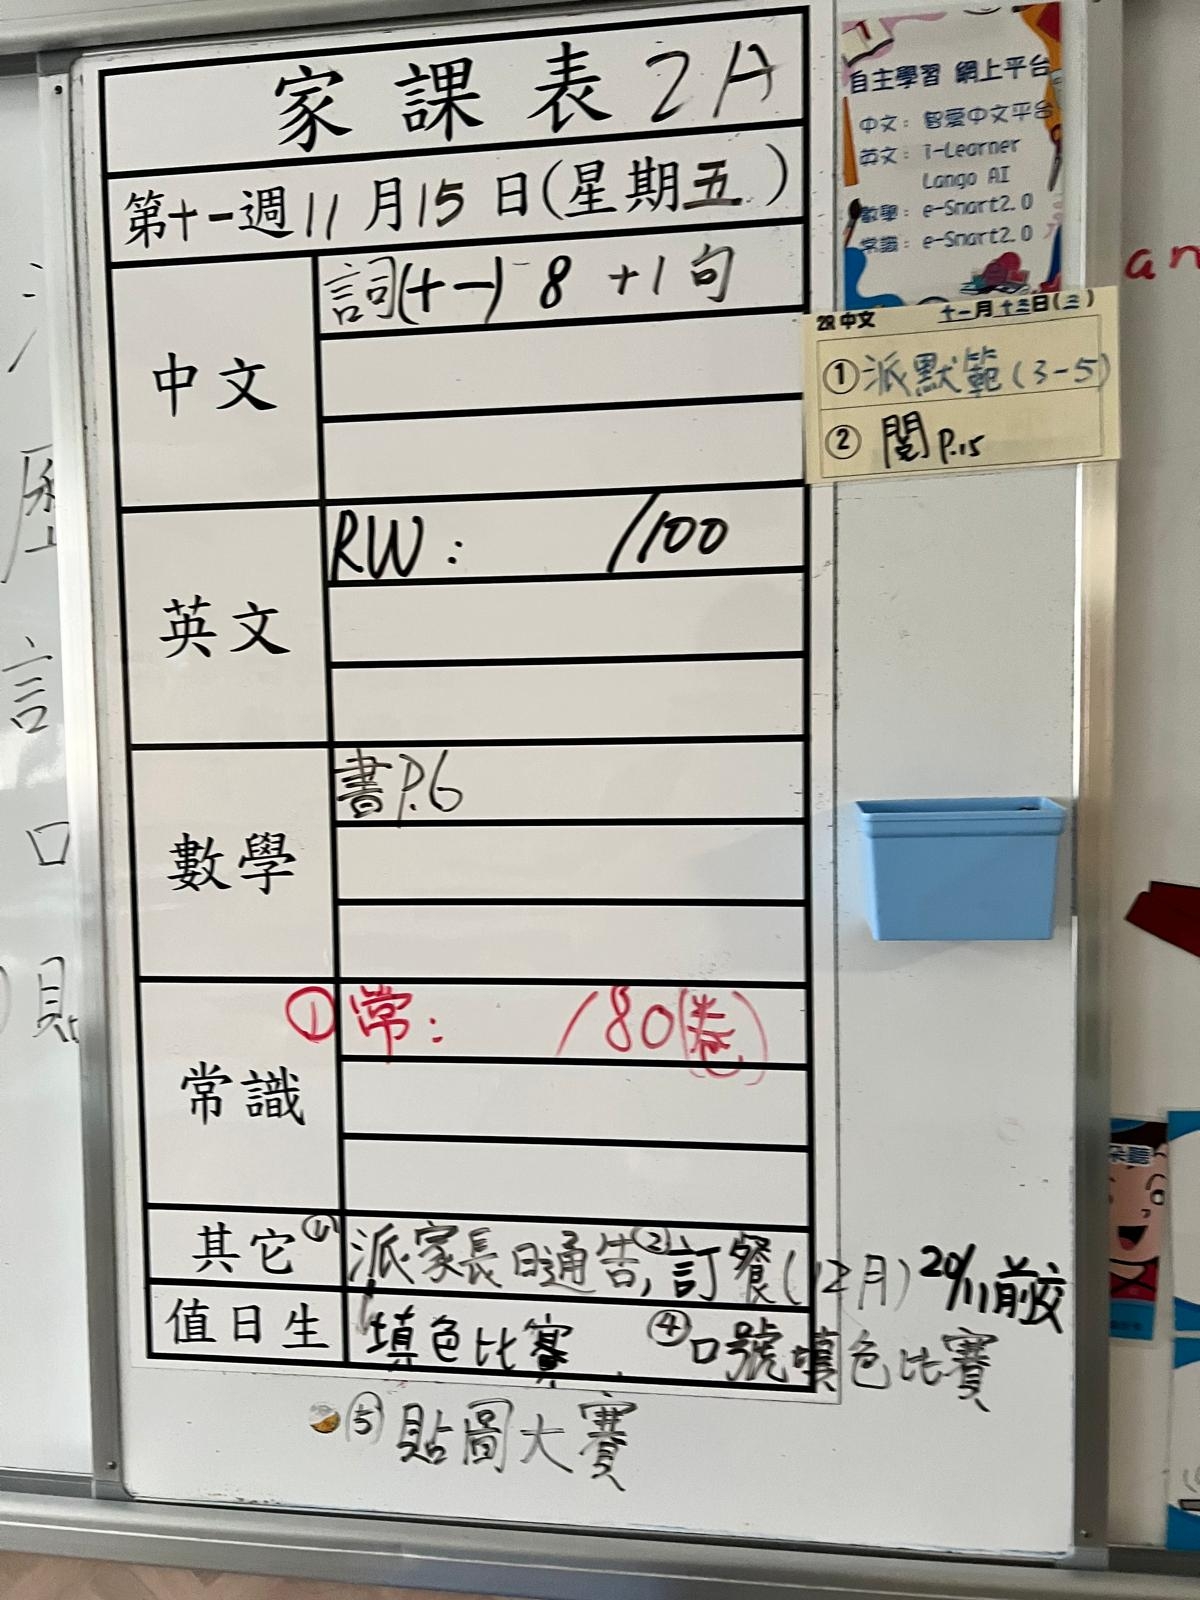 家課表 2A
第十一週 11月15日(星期五)
中文
詞(十一) 8 +1句
英文
RW: /100
數學
書P.6
常識
① 常: /80(卷)
其它
① 派家長日通告, ② 訂餐(12月) 20/11前交
值日生
填色比賽 ④ 口號填色比賽
⑤ 貼圖大賽
自主學習 網上平台
中文: 智愛中文平台
英文: i-Learner
Lango AI
數學: e-Smart2.0
常識: e-Smart2.0
2R 中文 十一月十三日(三)
① 派默範(3-5)
② 閱P.15
an
言
口
貼